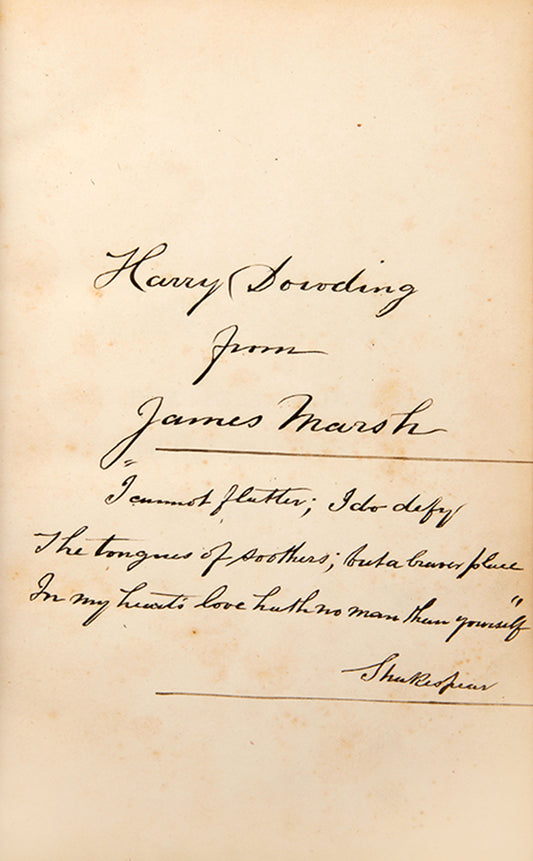 Harry Dowding
from
James Marsh
"I cannot flatter; I do defy
The tongues of soothers; but a braver place
In my heart's love hath no man than yourself"
Shakespear